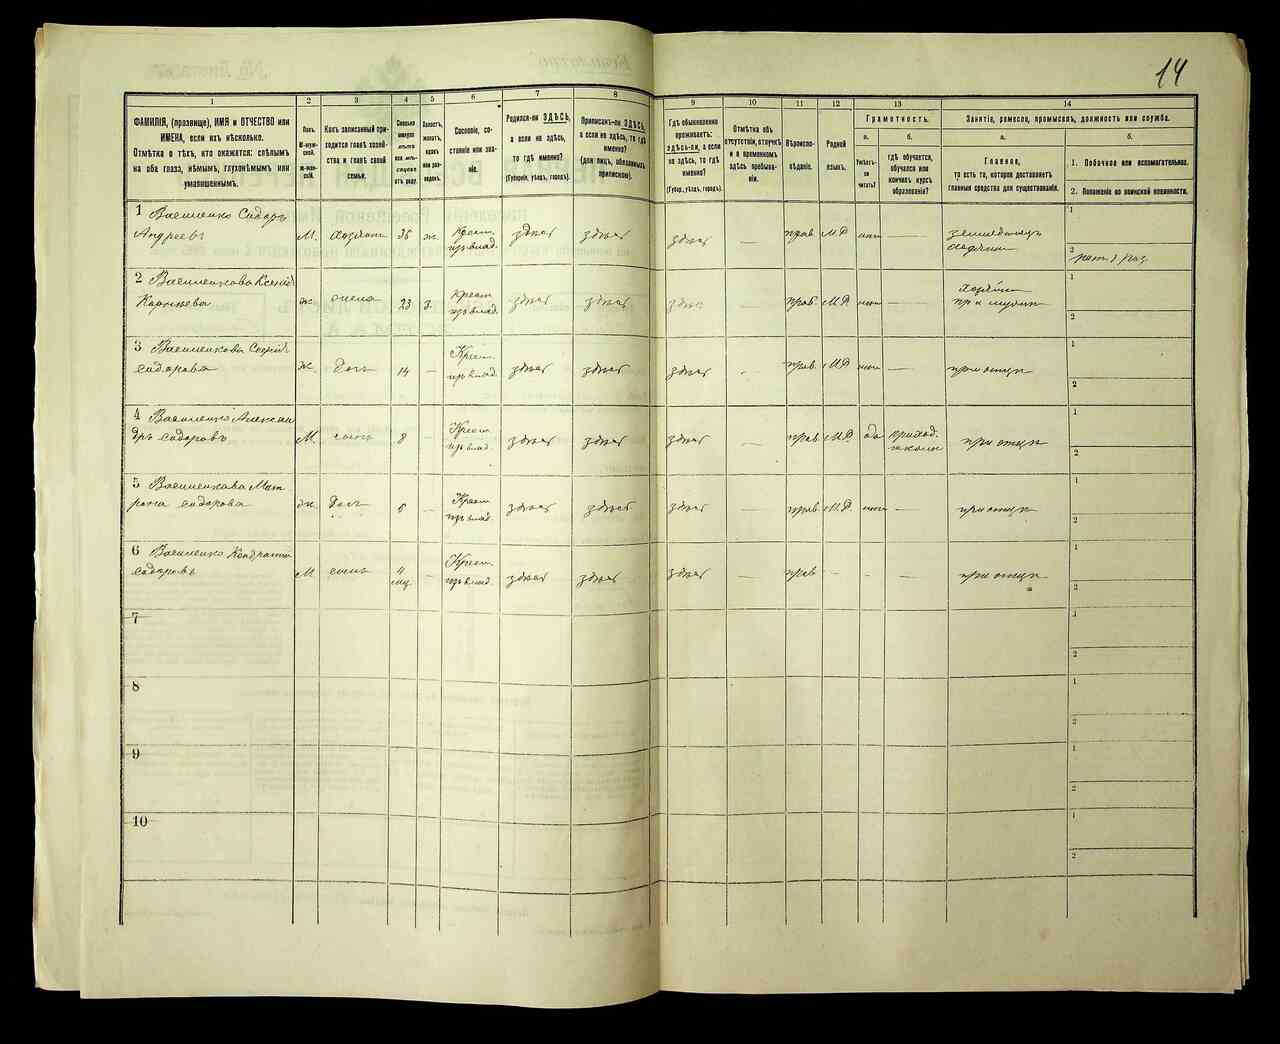 14
1 2 3 4 5 6 7 8 9 10 11 12 13 14
ФАМИЛІЯ, (прозвище), ИМЯ и ОТЧЕСТВО или
ИМЕНА, если ихъ нѣсколько.
Отмѣтка о тѣхъ, кто окажется: слѣпымъ
на оба глаза, нѣмымъ, глухонѣмымъ или
умалишеннымъ.
Полъ.
М-муж-
ской.
Ж-жен-
скій.
Какъ записанный при-
ходится главѣ хозяй-
ства и главѣ своей
семьи.
Сколько
минуло
лѣтъ
или мѣ-
сяцевъ
отъ роду.
Холостъ,
женатъ,
вдовъ
или раз-
веденъ.
Сословіе, со-
стояніе или зва-
ніе.
Родился-ли ЗДѢСЬ,
а если не здѣсь,
то гдѣ именно?
(Губернія, уѣздъ, городъ).
Приписанъ-ли ЗДѢСЬ,
а если не здѣсь, то гдѣ
именно?
(для лицъ, обязанныхъ
припискою).
Гдѣ обыкновенно
проживаетъ:
ЗДѢСЬ-ли, а если
не здѣсь, то гдѣ
именно?
(Губер., уѣздъ, городъ).
Отмѣтка объ
отсутствіи, отлучкѣ
и о временномъ
здѣсь пребыва-
ніи.
Вѣроиспо-
вѣданіе.
Родной
языкъ.
Грамотность.
а.
Умѣетъ-
ли
читать?
б.
гдѣ обучается,
обучался или
кончилъ курсъ
образованія?
Занятіе, ремесло, промыселъ, должность или служба.
а.
Главное,
то есть то, которое доставляетъ
главныя средства для существованія.
б.
1. Побочное или вспомогательное.
2. Положеніе по воинской повинности.
1 Василенко Сидоръ
Андреевъ М. хозяинъ 36 ж. Крест. пр. влад. здѣсь здѣсь здѣсь — прав. М.Р. нѣтъ — 1
2
2 Василенкова Ксенія
ж. жена 23 з. Крест. пр. влад. здѣсь здѣсь здѣсь — прав. М.Р. нѣтъ — 1
2
3 Василенкова
Сидорова ж. дочь 14 — Крест. пр. влад. здѣсь здѣсь здѣсь - прав. М.Р. нѣтъ — при отцѣ 1
2
4 Василенко Алексан
дръ Сидоровъ М. сынъ 8 - Крест. пр. влад. здѣсь здѣсь здѣсь — прав. М.Р. да приход. школѣ при отцѣ 1
2
5 Василенкова Мат
рона Сидорова ж. дочь 6 — Крест. пр. влад. здѣсь здѣсь здѣсь — прав. М.Р. нѣтъ — при отцѣ 1
2
6 Василенко Кондратій
Сидоровъ М сынъ 4 мц. — Крест. пр. влад. здѣсь здѣсь здѣсь — прав - - — при отцѣ 1
2
7 1
2
8 1
2
9 1
2
10 1
2